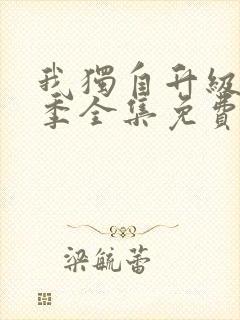 我獨自升級
季全集免費
梁毓蕾